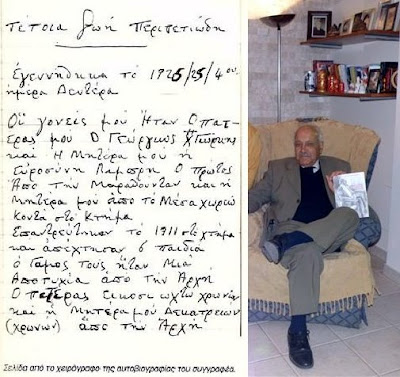 Τέτοια ζωή Περιπετιώδη
Εγεννήθηκα το 1925/25/4ου
ημέρα Δευτέρα
Οϊ γονείς μου Ήταν Ο πατ
έρας μου Ο Γεώργιος
και Η Μητέρα μου ή
Ευροσύνη Λαμπρη Ο πρώτος
Από την Μαραθούνταν και ή
Μητέρα μου από το Μέσα χωριό
κοντά στο Κτημα
Επαντρεύτηκον το 1911 στο χτημα
και απέχτησαν 6 παιδια
ο Γάμος τους ήταν Μιά
Αποτυχία από την Αρχή
Ο πατέρας είκοσι ωχτω χρονών
και ή Μητέρα μου Δεκατρειων
(χρωνων) από την Άρχη
Σελίδα από το χειρόγραφο της αυτοβιογραφίας του συγγραφέα.